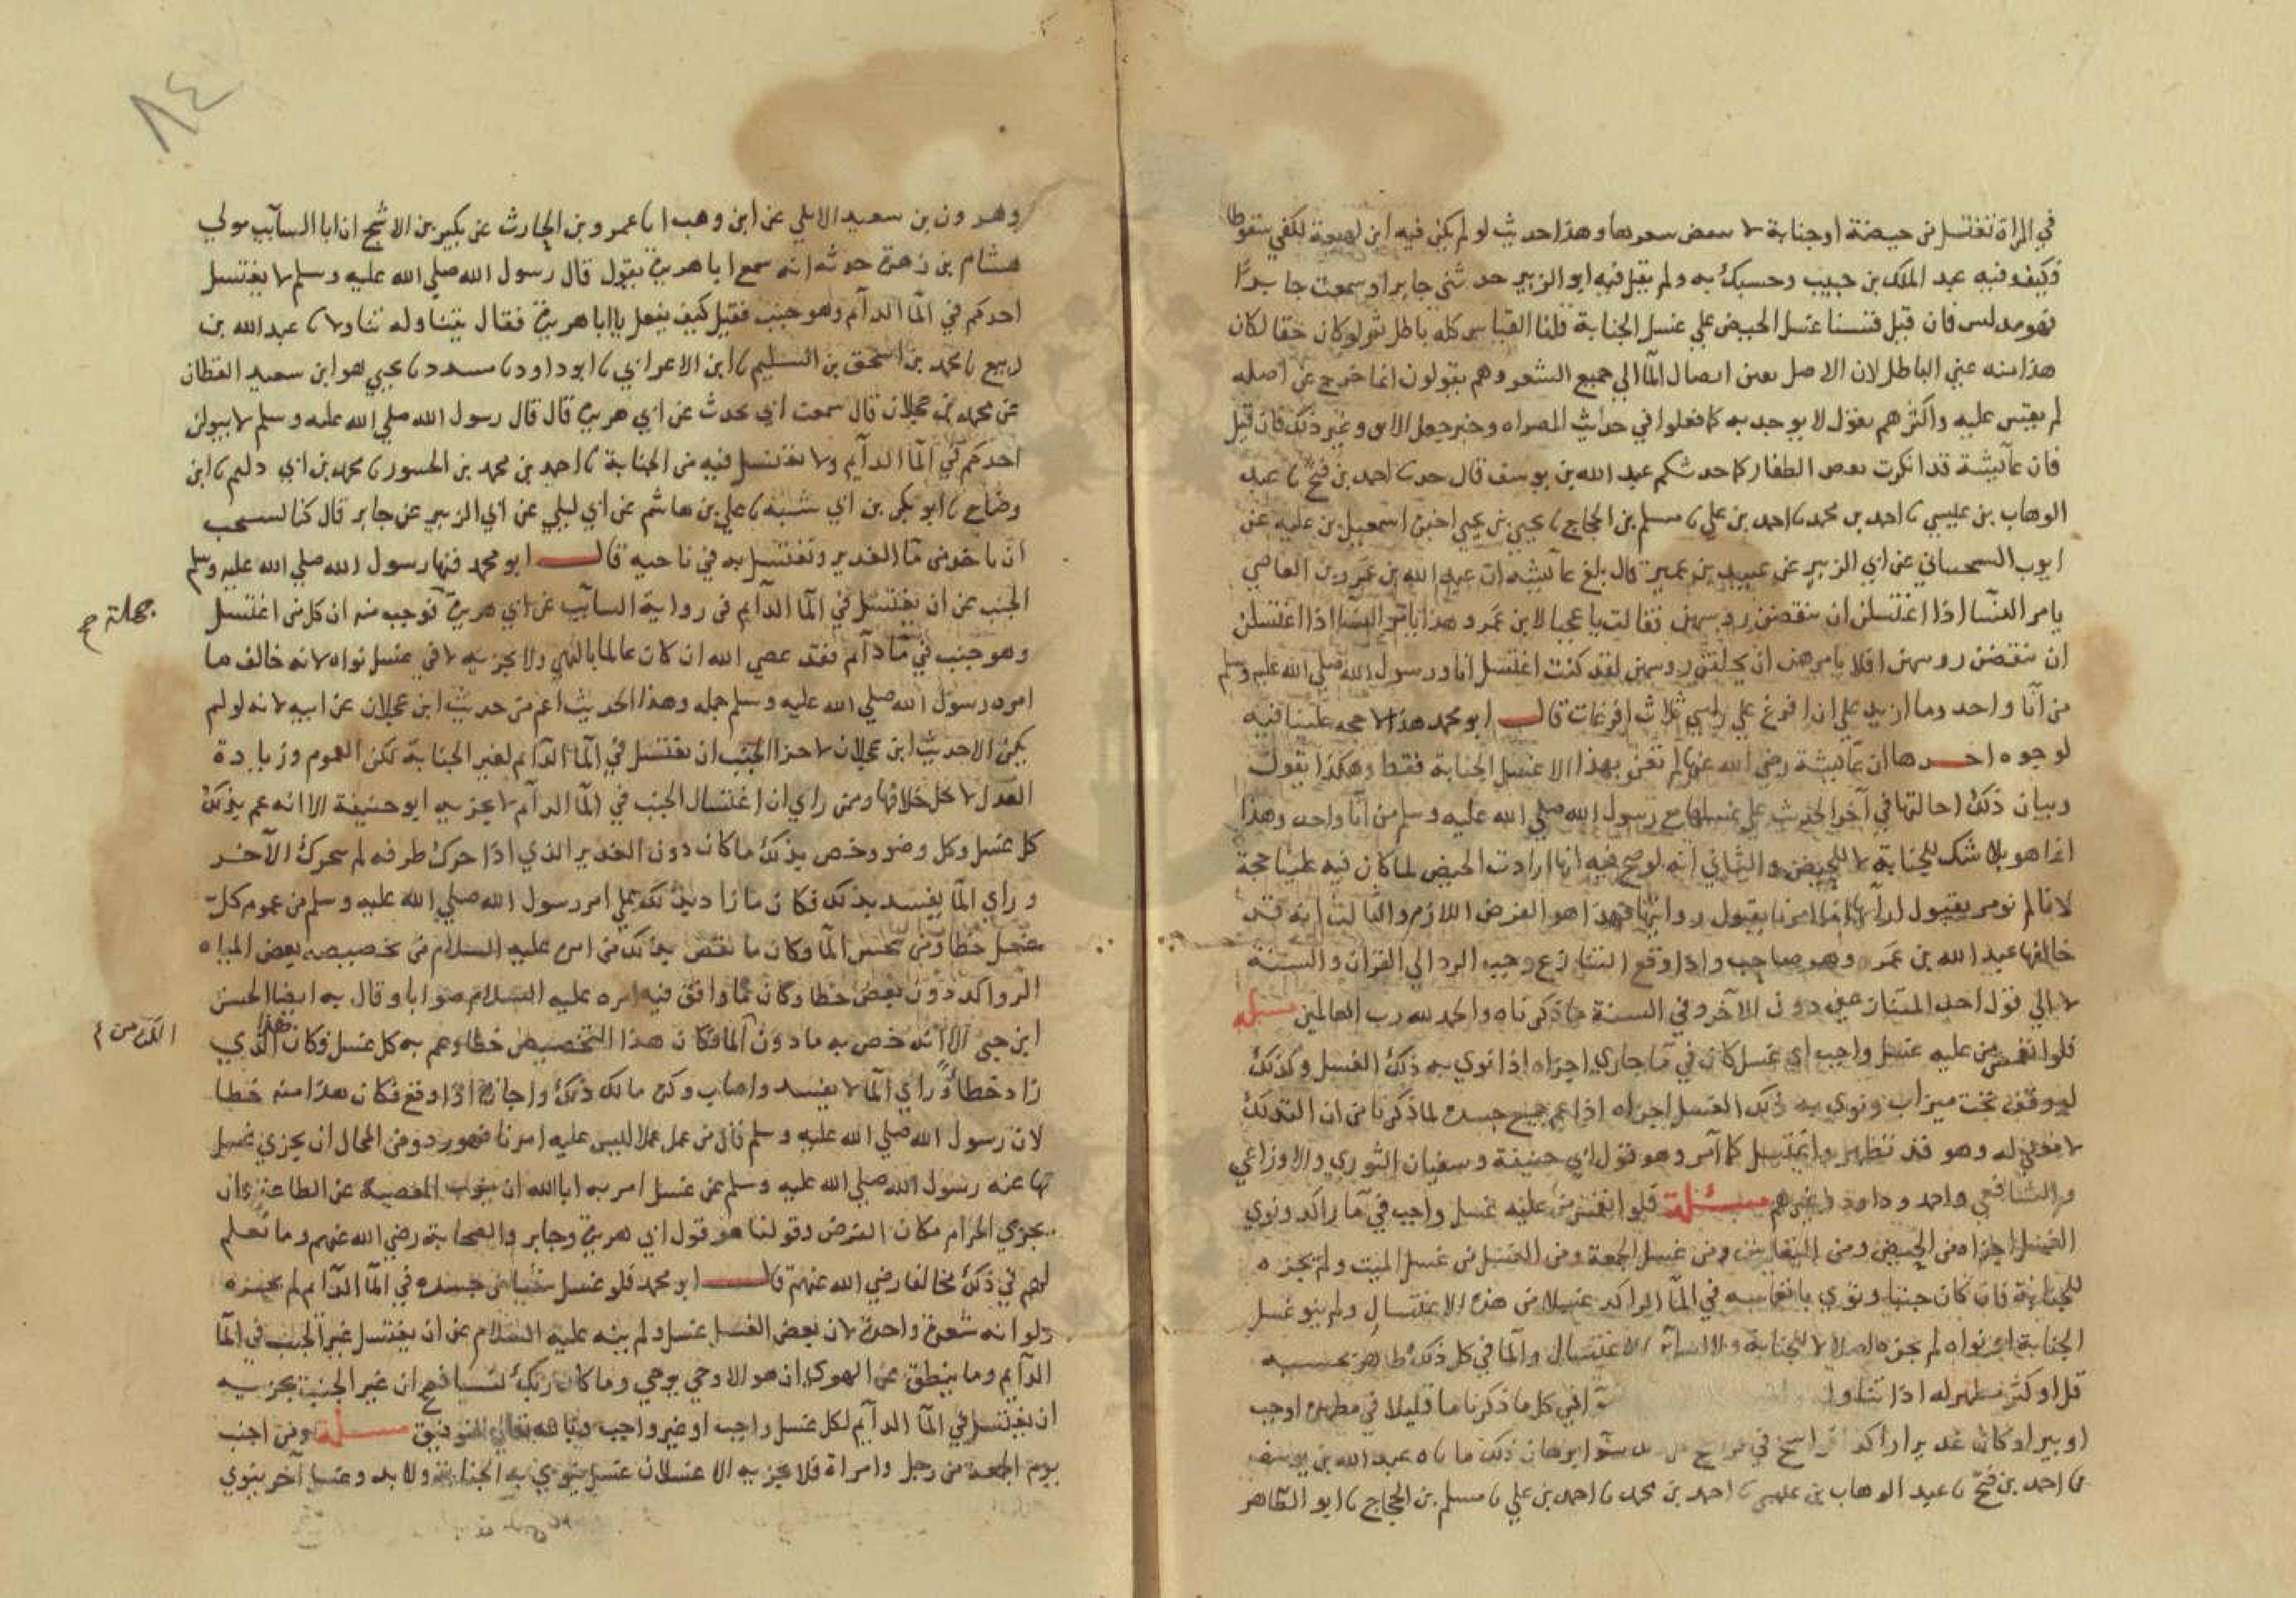 في المراة تغتسل من حيضة او جنابة لا تنقض شعرها وهذا حديث لو لم يكن فيه ابن لهيعة لكفي سقوطا
فكيف وفيه عبد الملك بن حبيب وحسبك به ولم يقل فيه ابو الزبير حدثني جابر او سمعت جابرا
فهو مدلس فان قيل قسنا غسل الحيض علي غسل الجنابة قلنا القياس كله باطل ثم لو كان حقا لكان
هذا منه عين الباطل لان الاصل يعني ايصال الما الي جميع الشعر وهم يقولون ان ما خرج عن اصله
لم يقس عليه واكثرهم يقول لا يوخذ به كما فعلوا في حديث المصراه وخبر جعل الابق وغير ذلك فان قيل
فان عآئشة قد انكرت نقض الظفاير كما حدثكم عبد الله بن يوسف قال حدثنا احمد بن فتح نا عبد
الوهاب بن عيسي نا احمد بن محمد نا احمد بن علي نا مسلم بن الحجاج نا يحيي بن يحيي اخبرنا اسمعيل بن عليه عن
ايوب السختياني عن ابي الزبير عن عبيد بن عمير قال بلغ عآئشة ان عبد الله بن عمرو بن العاصي
يامر النسا اذا اغتسلن ان ينقضن روسهن فقالت يا عجبا لابن عمرو هذا يامر النسا اذا اغتسلن
ان ينقضن روسهن افلا يامرهن ان يحلقن روسهن لقد كنت اغتسل انا ورسول الله صلي الله عليه وسلم
من انآ واحد وما ازيد علي ان افرغ علي راسي ثلاث افرغات قال ابو محمد هذا لا حجه علينا فيه
لوجوه احدها ان عآئشة رضي الله عنها لم تعن بهذا الا غسل الجنابة فقط وهكذا نقول
وبيان ذلك احالتها في آخر الحديث علي غسلها مع رسول الله صلي الله عليه وسلم من انآ واحد وهذا
انما هو بلا شك للجنابة لا للحيض والثاني انه لو صح فيه انها ارادت الحيض لما كان فيه علينا حجة
لانا لم نومر بقبول رآيها انما امرنا بقبول روايتها فهذا هو الفرض اللازم والثالث انه قد
خالفها عبد الله بن عمرو وهو صاحب واذا وقع التنازع وجب الرد الي القران والسنة
لا الي قول احد المتنازعين دون الآخر وفي السنة ما ذكرناه والحمد لله رب العالمين مسئله
فلو انغمس من عليه غسل واجب اي غسل كان في مآ جاري اجزاه اذا نوي به ذلك الغسل وكذلك
لو وقف تحت ميزاب ونوي به ذلك الغسل اجزاه اذا عم جميع جسده لما ذكرنا من ان التدلك
لا معني له وهو قد تطهر واغتسل كما آمر وهو قول ابي حنيفة وسفيان الثوري والاوزاعي
والشافعي واحمد وداود وغيرهم مسئلة فلو انغمس من عليه غسل واجب في مآ راكد ونوي
الغسل اجزاه من الحيض ومن النفاس ومن غسل الجمعة ومن الغسل من غسل الميت ولم يجزه
للجنابة فان كان جنبا ونوي بانغماسه في المآ الراكد غسلا من هذه الاغتسال ولم ينو غسل
الجنابة او نواه لم يجزه اصلا لا للجنابة ولا لسآئر الاغتسال والما في كل ذلك طاهر بحسبه
قل او كثر مطهر له اذا تناوله الي كل ما ذكرنا ما قليلا في مطهره او جب
او بير او كان غديرا راكدا فراسخ في فراسخ كل ذلك سوآ برهان ذلك ما ناه عبد الله بن يوسف
نا احمد بن فتح نا عبد الوهاب بن عيسي نا احمد بن محمد نا احمد بن علي نا مسلم بن الحجاج نا ابو الطاهر
٨٤
وهرون بن سعيد الايلي عن ابن وهب انا عمرو بن الحارث عن بكير بن الاشج ان ابا السآئب مولي
هشام بن زهرة حدثه انه سمع ابا هريرة يقول قال رسول الله صلي الله عليه وسلم لا يغتسل
احدكم في المآ الدآئم وهو جنب فقيل كيف يفعل يا ابا هريرة فقال يتناوله تناولا نا عبد الله بن
ربيع نا محمد بن اسحق بن السليم نا ابن الاعرابي نا ابو داود نا مسدد نا يحيي هو ابن سعيد القطان
عن محمد بن عجلان قال سمعت ابي يحدث عن ابي هريرة قال قال رسول الله صلي الله عليه وسلم لا يبولن
احدكم في المآ الدآئم ولا يغتسل فيه من الجنابة نا احمد بن محمد بن الجسور نا محمد بن ابي دليم نا ابن
وضاح نا ابو بكر بن ابي شيبه نا علي بن هاشم عن ابي ليلي عن ابي الزبير عن جابر قال كنا نستحب
ان ناخذ من مآ الغدير ونغتسل به في ناحيه قال ابو محمد فنها رسول الله صلي الله عليه وسلم
الجنب عن ان يغتسل في المآ الدآئم في رواية السآئب عن ابي هريرة فوجب منه ان كل من اغتسل
وهو جنب في مآ دآئم فقد عصي الله ان كان عالما بالنهي ولا يجزيه لاي غسل نواه لانه خالف ما
امره رسول الله صلي الله عليه وسلم جمله وهذا الحديث اعم من حديث ابن عجلان عن ابيه لانه لو لم
يكن الا حديث ابن عجلان لاجزا الجنب ان يغتسل في المآ الدآئم لغير الجنابة لكن العموم وزيادة
العدل لا يحل خلافها وممن راي ان اغتسال الجنب في المآ الدآئم لا يجزيه ابو حنيفة الا انه عم بذلك
كل غسل وكل وضو وخص بذلك ما كان دون الغدير الذي اذا حرك طرفه لم يتحرك الآخر
وراي المآ يفسد بذلك فكان ما زاد بذلك علي امر رسول الله صلي الله عليه وسلم من عموم كل
غسل خطا ومن تنجس المآ وكان ما نقص بذلك من امره عليه السلام من تخصيصه بعض المياه
الرواكد دون بعض خطا وكان مما وافق فيه امره عليه السلام صوابا وقال به ايضا الحسن
ابن حي الا انه خص به ما دون المآ فكان هذا التخصيص خطا وعم به كل غسل فكان هذا الذي
زاد خطا وراي المآ لا يفسد واصاب وكره مالك ذلك واجازه اذا وقع فكان هذا منه خطا
لان رسول الله صلي الله عليه وسلم قال من عمل عملا ليس عليه امرنا فهو رد ومن المحال ان يجزي غسل
نها عنه رسول الله صلي الله عليه وسلم عن غسل امر به ابا الله ان ينوب المعصية عن الطاعة وان
يجزي الحرام مكان الفرض وقولنا هو قول ابي هريرة وجابر والصحابة رضي الله عنهم وما نعلم
لهم في ذلك مخالفا رضي الله عنهم قال ابو محمد فلو غسل شيا من جسده في المآ الدآئم لم يجزه
ولو انه شعرة واحدة لان بعض الغسل غسل ولم ينه عليه السلام عن ان يغتسل غير الجنب في المآ
الدآئم وما ينطق عن الهوي ان هو الا وحي يوحي وما كان ربك نسيا فصح ان غير الجنب يجزيه
ان يغتسل في المآ الدآئم لكل غسل واجب او غير واجب وبالله تعالي التوفيق مسئلة ومن اجنب
يوم الجمعة من رجل وامراة فلا يجزيه الا غسلان غسل ينوي به الجنابة ولا بد وغسل آخر ينوي